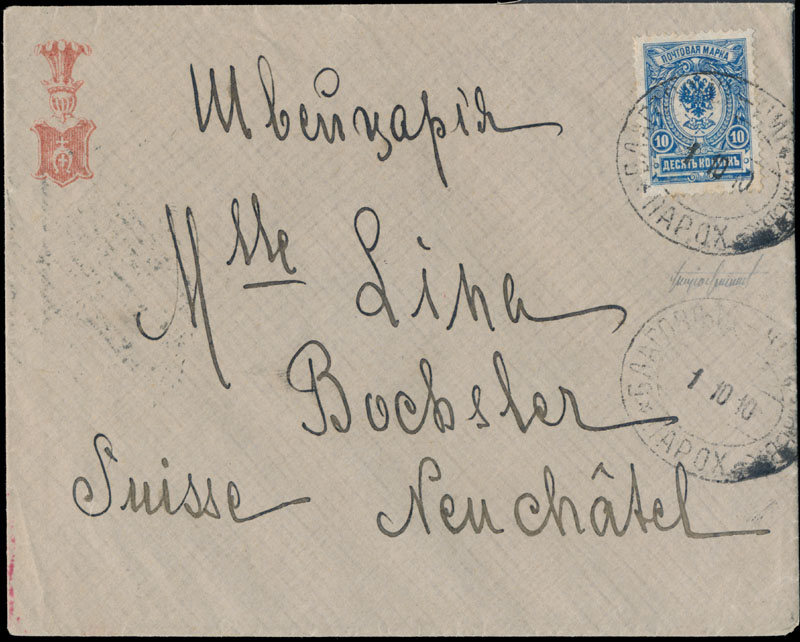 Швейцарія
ПОЧТОВАЯ МАРКА
10 10
ДЕСЯТЬ КОПѢЕКЪ
1 10 10
ПАРОХ
Mlle Lina
Bochsler
Suisse Neuchâtel
1 10 10
ПАРОХ